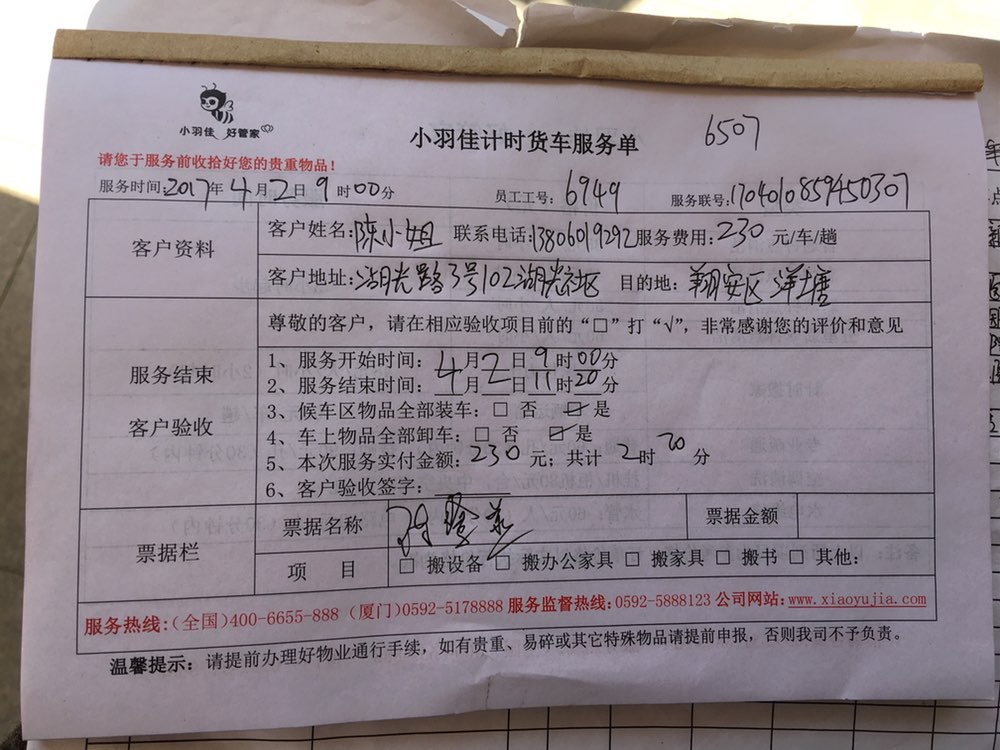 小羽佳 好管家
小羽佳计时货车服务单
6507
请您于服务前收拾好您的贵重物品！
服务时间:2017年4月2日9时00分 员工工号:6949 服务联号:1704010859450307
客户资料
客户姓名:陈小姐 联系电话:13806019292 服务费用:230元/车/趟
客户地址:湖光路3号102湖光社区 目的地:翔安区洋塘
尊敬的客户，请在相应验收项目前的“□”打“√”，非常感谢您的评价和意见
服务结束
客户验收
1、服务开始时间：4月2日9时00分
2、服务结束时间：4月2日11时20分
3、候车区物品全部装车：□ 否 ☑ 是
4、车上物品全部卸车：□ 否 ☑ 是
5、本次服务实付金额：230元；共计2时20分
6、客户验收签字：
票据栏
票据名称
票据金额
项 目
□ 搬设备 □ 搬办公家具 □ 搬家具 □ 搬书 □ 其他：
服务热线:(全国)400-6655-888 (厦门)0592-5178888 服务监督热线:0592-5888123 公司网站:www.xiaoyujia.com
温馨提示：请提前办理好物业通行手续，如有贵重、易碎或其它特殊物品请提前申报，否则我司不予负责。